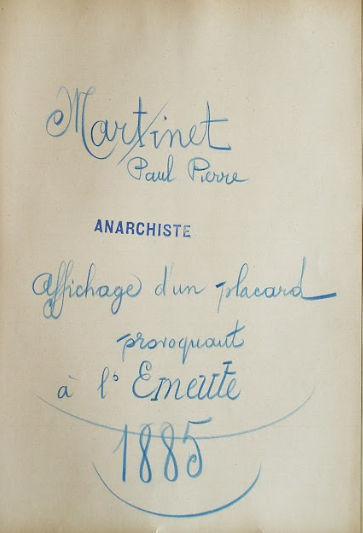 Martinet
Paul Pierre
ANARCHISTE
Affichage d'un placard
provoquant
à l'Emeute
1885